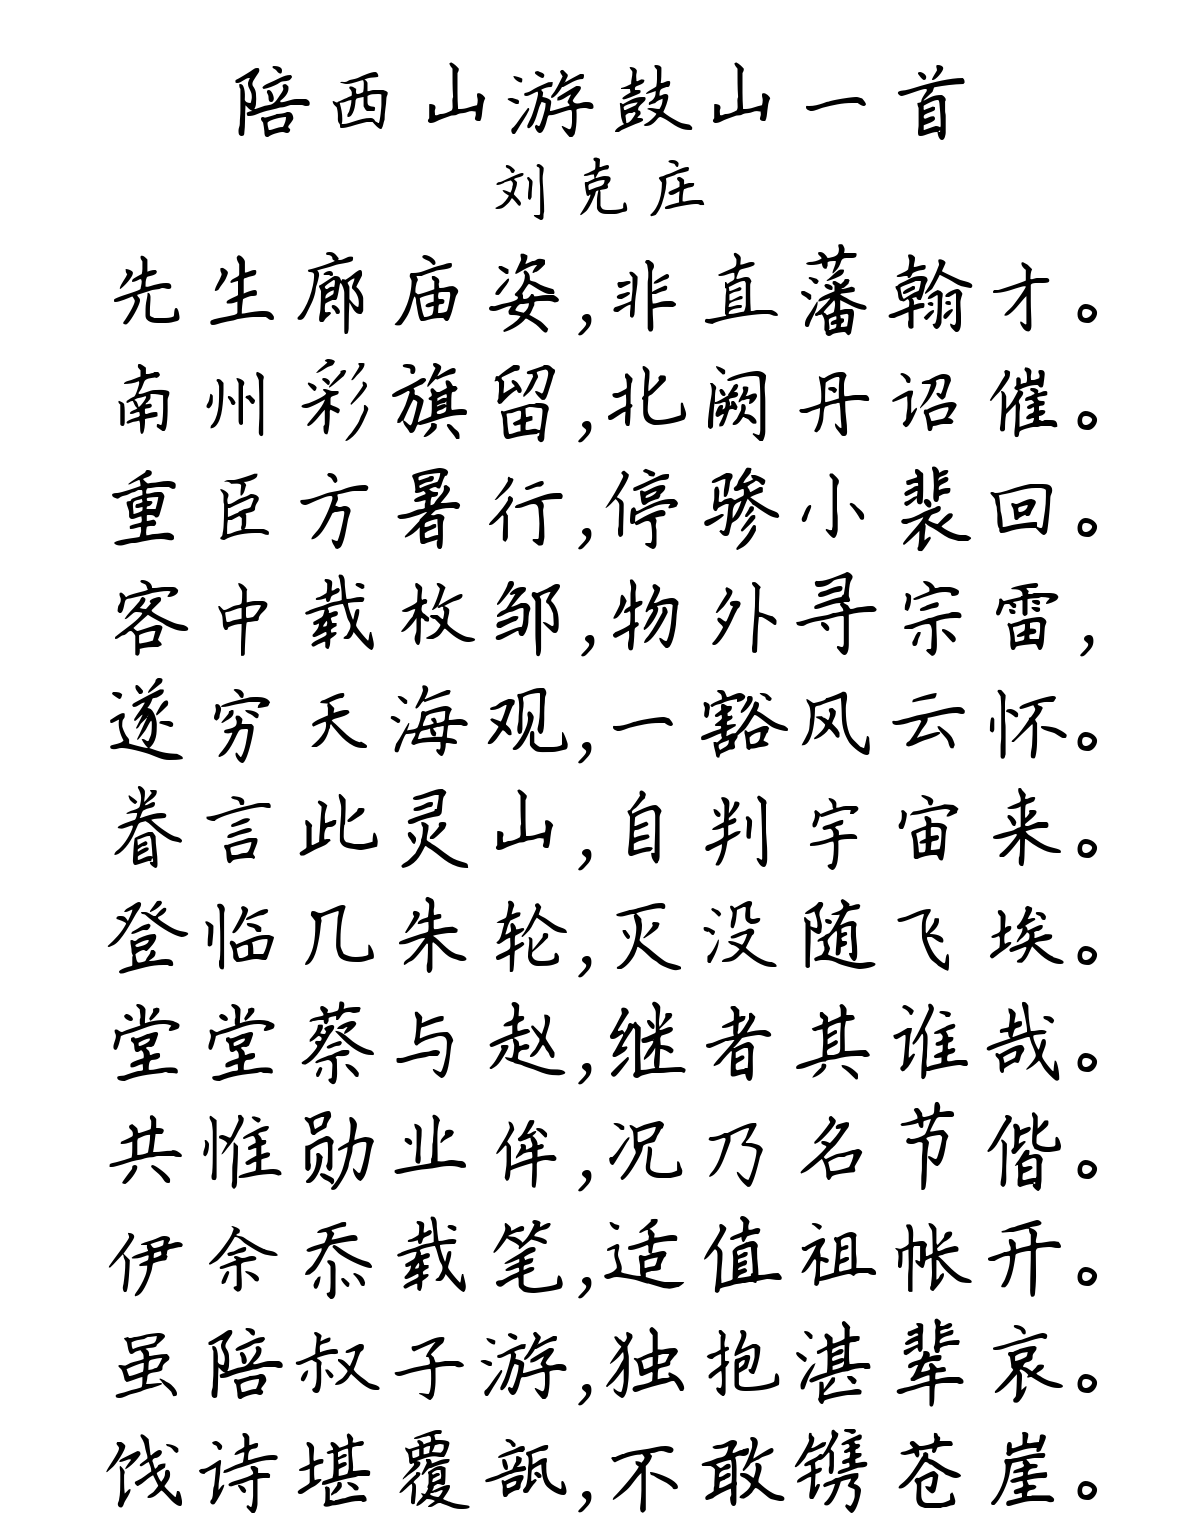 陪西山游鼓山一首
刘克庄
先生廊庙姿,非直藩翰才。
南州彩旗留,北阙丹诏催。
重臣方暑行,停骖小裴回。
客中载枚邹,物外寻宗雷,
遂穷天海观,一豁风云怀。
眷言此灵山,自判宇宙来。
登临几朱轮,灭没随飞埃。
堂堂蔡与赵,继者其谁哉。
共惟勋业侔,况乃名节偕。
伊余忝载笔,适值祖帐开。
虽陪叔子游,独抱湛辈哀。
饯诗堪覆瓿,不敢镌苍崖。